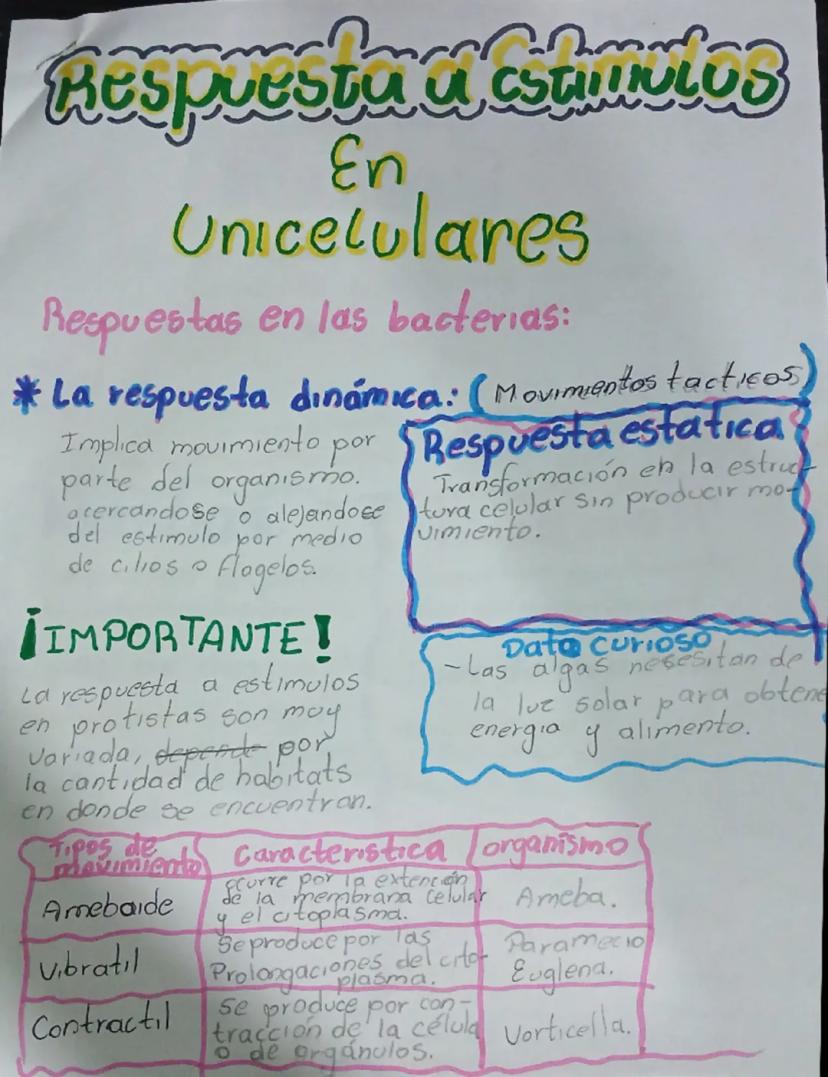 Respuesta a Estimulos
En
Unicelulares
Respuestas en las bacterias:
* La respuesta dinámica: (Movimientos tacticos)
Implica movimiento por
parte del organismo.
acercandose o alejandose
del estimulo por medio
de cilios o flagelos.
Respuesta estatica
Transformación en la estruc-
tura celular sin producir mo-
vimiento.
¡IMPORTANTE!
La respuesta a estimulos
en protistas son muy
variada, depende por
la cantidad de habitats
en donde se encuentran.
Dato curioso
-Las algas nesesitan de
la luz solar para obtene
energia y alimento.
Tipos de
movimiento
Caracteristica
organismo
Ameboide
ocurre por la extención
de la membrana celular
y el citoplasma.
Ameba.
Vibratil
Se produce por las
Prolongaciones del cito-
plasma.
Paramecio
Euglena.
Contractil
Se produce por con-
tracción de la célula
o de orgánulos.
Vorticella.